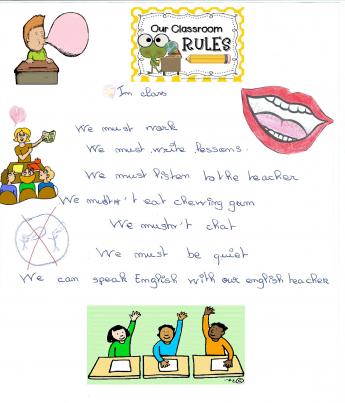 Our Classroom
RULES
In class
We must work
We must write lessons.
We must listen to the teacher
We mustn't eat chewing gum
We mustn't chat
We must be quiet
We can speak English with our english teacher